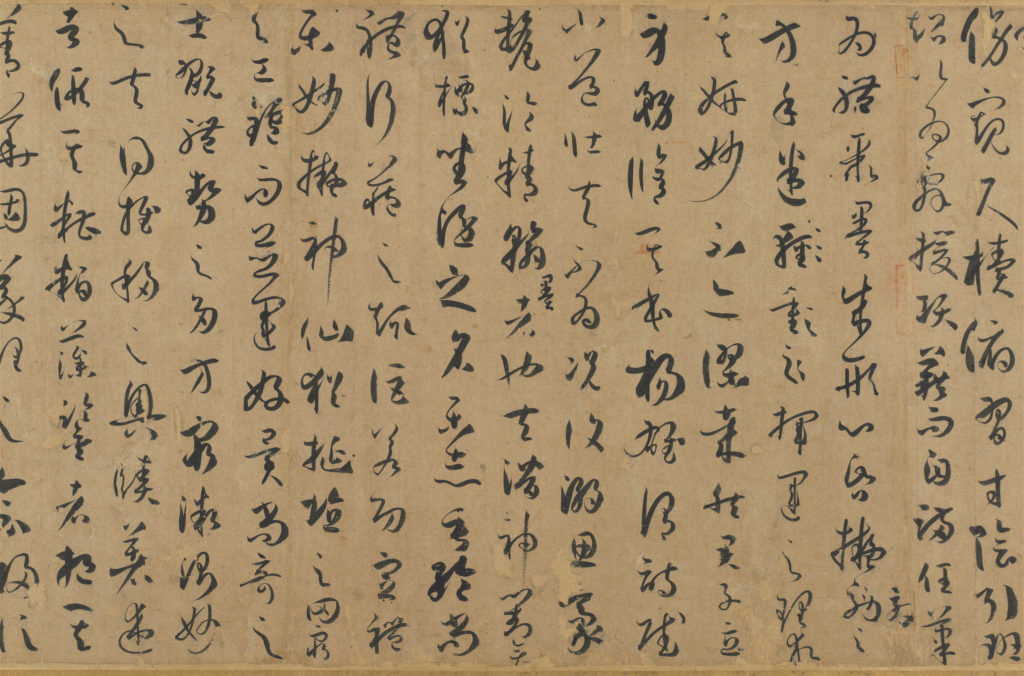 傍窺尺牘俯習寸陰引班
超以爲辭援項籍而自滿任筆
爲體聚墨成形心昏擬效之
方手迷揮運之理求
其妍妙不亦謬哉然君子立
身務脩其本楊雄謂詩賦
小道壯夫不爲況復溺思豪
氂淪精翰墨者也夫潛神對弈
猶標坐隱之名樂志垂綸尚
體行藏之趣詎若功定禮
樂妙擬神仙猶埏埴之罔窮
与工鑪而並運好異尚奇之
士翫體勢之多方窮微測妙
之夫得推移之奧賾著述
者假其糟粕藻鑒者挹其
菁華固義理之會歸信